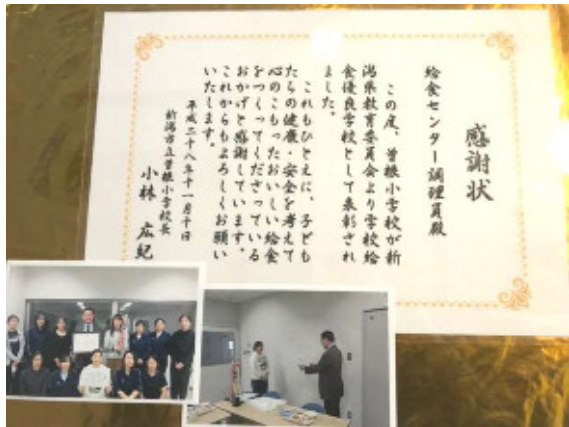 感謝状
給食センター調理員殿
この度、曽根小学校が新
潟県教育委員会より学校給
食優良学校として表彰され
ました。
これもひとえに、子ども
たちの健康・安全を考えて
心のこもったおいしい給食
をつくってくださっている
おかげと感謝しています。
これからもよろしくお願い
いたします。
平成二十八年十一月十日
新潟市立曽根小学校長
小林 広紀